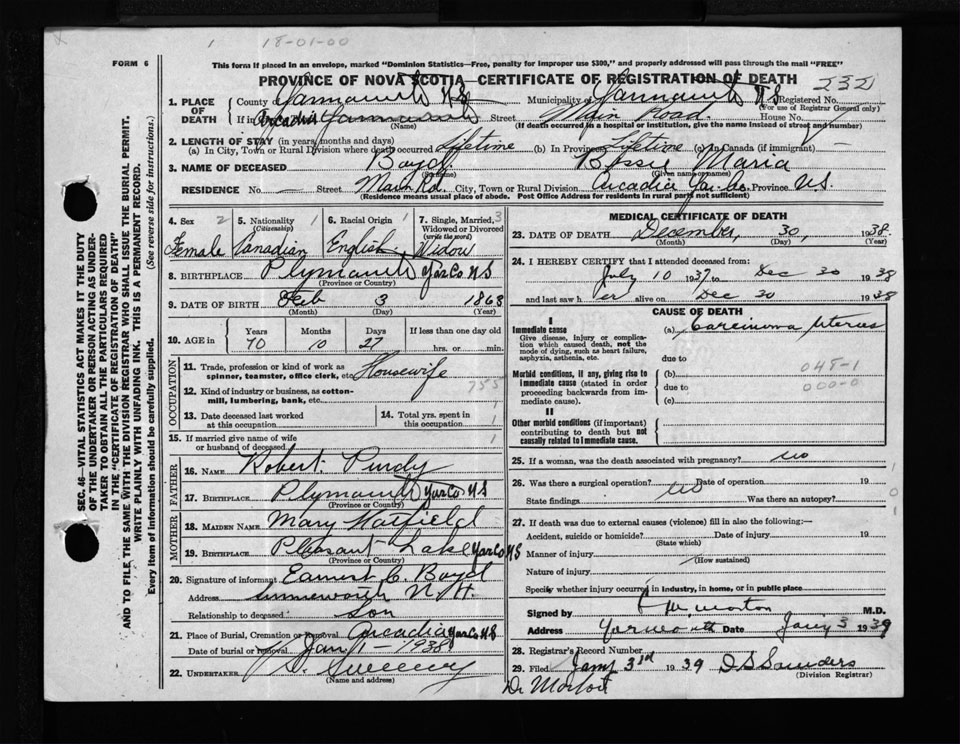 1 18-01-00
FORM 6
This form if placed in an envelope, marked "Dominion Statistics—Free, penalty for improper use $300," and properly addressed will pass through the mail "FREE"
PROVINCE OF NOVA SCOTIA—CERTIFICATE OF REGISTRATION OF DEATH 232
1. PLACE OF DEATH County of Yarmouth N.S. Municipality of Yarmouth N S Registered No.
(For use of Registrar General only)
If in Arcadia Yarmouth Street Main Road House No.
(Name) (If death occurred in a hospital or institution, give the name instead of street and number)
2. LENGTH OF STAY (in years, months and days)
(a) In City, Town or Rural Division where death occurred Lifetime (b) In Province Lifetime (c) In Canada (if immigrant) —
3. NAME OF DECEASED Boyd Bessie Maria
(Surname) (Given name or names)
RESIDENCE No. — Street Main Rd. City, Town or Rural Division Arcadia Yar. Co. Province N.S.
(Residence means usual place of abode. Post Office Address for residents in rural parts not sufficient)
4. Sex 2 5. Nationality 1 6. Racial Origin 1 7. Single, Married, 3
(Citizenship) Widowed or Divorced
(write the word)
Female Canadian English Widow
8. BIRTHPLACE Plymouth Yar Co N S
(Province or Country)
9. DATE OF BIRTH Feb 3 1868
(Month) (Day) (Year)
10. AGE in Years Months Days If less than one day old
70 10 27 hrs. or min.
OCCUPATION
11. Trade, profession or kind of work as spinner, teamster, office clerk, etc. Housewife
12. Kind of industry or business, as cotton-mill, lumbering, bank, etc. 755
13. Date deceased last worked at this occupation
14. Total yrs. spent in this occupation 1
15. If married give name of wife or husband of deceased 1
FATHER
16. NAME Robert Purdy
17. BIRTHPLACE Plymouth Yar Co N S
(Province or Country)
MOTHER
18. MAIDEN NAME Mary Hatfield
19. BIRTHPLACE Pleasant Lake Yar Co N S
(Province or Country)
20. Signature of informant Earnest C. Boyd
Address N. H.
Relationship to deceased Son
21. Place of Burial, Cremation or Removal Arcadia Yar Co N S
Date of burial or removal Jan 1 – 1938
22. UNDERTAKER Sweeney
(Name and address)
MEDICAL CERTIFICATE OF DEATH
23. DATE OF DEATH December, 30, 1938.
(Month) (Day) (Year)
24. I HEREBY CERTIFY that I attended deceased from:
July 10 1937 to Dec 30 1938
and last saw her alive on Dec 30 1938
CAUSE OF DEATH
I
Immediate cause (a) Carcinoma Uterus
Give disease, injury or complication which caused death, not the mode of dying, such as heart failure, asphyxia, asthenia, etc.
due to
Morbid conditions, if any, giving rise to immediate cause (stated in order proceeding backwards from immediate cause).
(b) 048-1
due to 000-0
(c)
II
Other morbid conditions (if important) contributing to death but not causally related to immediate cause.
25. If a woman, was the death associated with pregnancy? no
26. Was there a surgical operation? no Date of operation 19
State findings Was there an autopsy?
27. If death was due to external causes (violence) fill in also the following:—
Accident, suicide or homicide? Date of injury 19
(State which)
Manner of injury
(How sustained)
Nature of injury
Specify whether injury occurred in industry, in home, or in public place
Signed by W. Morton M.D.
Address Yarmouth Date Jany 3 1939
28. Registrar's Record Number
29. Filed Jany 3rd 1939 D S Saunders
(Division Registrar)
Dr Morton
SEC. 46—VITAL STATISTICS ACT MAKES IT THE DUTY
OF THE UNDERTAKER OR PERSON ACTING AS UNDER-
TAKER TO OBTAIN ALL THE PARTICULARS REQUIRED
IN THE "CERTIFICATE OF REGISTRATION OF DEATH"
AND TO FILE THE SAME WITH THE DIVISION REGISTRAR WHO SHALL ISSUE THE BURIAL PERMIT.
WRITE PLAINLY WITH UNFADING INK. THIS IS A PERMANENT RECORD.
Every item of information should be carefully supplied. (See reverse side for instructions.)